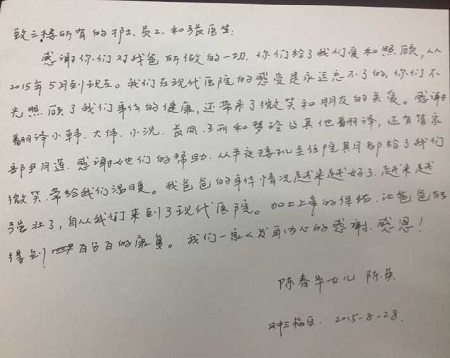 致三楼所有的护士、员工、和张医生:
感谢你们对我爸所做的一切.你们给了我们爱和照顾,从
2015年5月到现在。我们在现代医院的感受是永远忘不了的,你们不
光照顾了我们身体的健康,还带来了微笑和朋友的关爱。感谢
翻译小韩、大伟、小沈、长风、和梦玲及其他翻译,还有管家
部尹月莲.感谢她们的帮助.从半夜接机至住院其间都给了我们
微笑.带给我们温暖。我爸爸的身体情况越来越好了.越来越
强壮了,自从我们来到了现代医院。加上上帝的保佑.让爸爸能
得到百分百的康复。我们一家人发自内心的感谢.感恩!
陈春华女儿 陈英
2015-8-28.